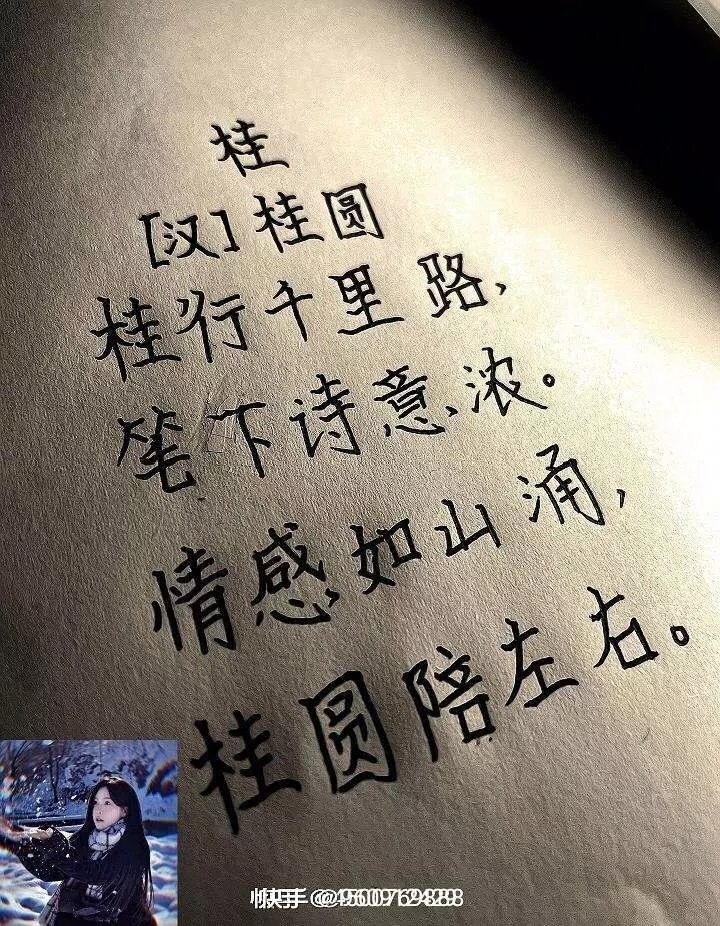 桂
[汉]桂圆
桂行千里路，
笔下诗意浓。
情感如山涌，
桂圆陪左右。
快手